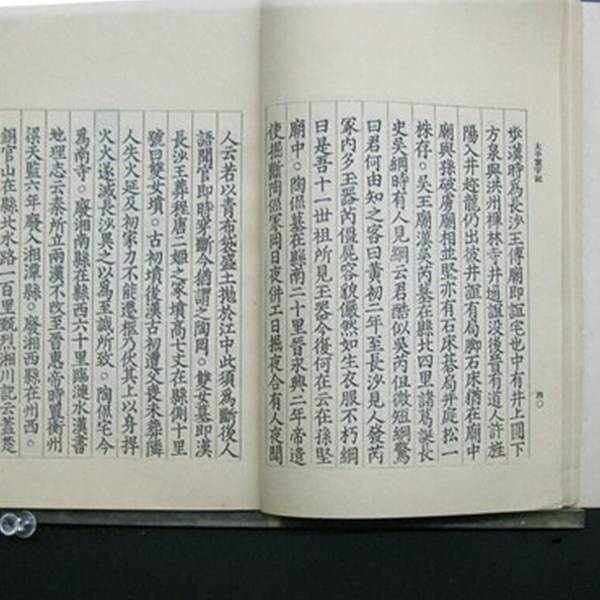 太平寰宇記
四〇
步漢時為長沙王傅廟即誼宅也中有井上圓下
方泉與洪州禪林寺井通誼沒後晉有道人許旌
陽入井趁龍仍出彼井誼有局脚石床猶在廟中
廟與孫破虜廟相並堅亦有石床碁局并庭松一
株存。吳王廟漢吳芮墓在縣北四里諸葛誕長
史吳綱時有人見綱云君酷似吳芮但微短綱驚
曰君何由知之客曰黃初二年至長沙見人發芮
冢內多玉器芮僵屍容貌儼然如生衣服不朽綱
曰是吾十一世祖所見玉器今復何在云在孫堅
廟中。陶侃墓在縣南二十里晉永興二年帝遣
使掘斷陶侃冢岡日夜併工日掘夜合有人夜聞
人云若以青布袋盛土拋於江中此須為斷後人
語聞官即時穿斷今猶謂之陶岡。雙女墓即漢
長沙王葬程唐二姬之冢墳高七丈在縣側十里
號曰雙女墳。古初墳後漢古初遭父喪未葬隣
人失火延及初家力不能遷柩乃伏其上以身捍
火火遂滅長沙異之以為至誠所致。陶侃宅今
為南寺。廢湘南縣在縣西六十里臨漣水漢書
地理志云秦所立兩漢不改至晉惠帝時置衡州
梁天監六年廢入湘潭縣。廢湘西縣在州西。
銅官山在縣北水路一百里甄烈湘川記云蓋楚